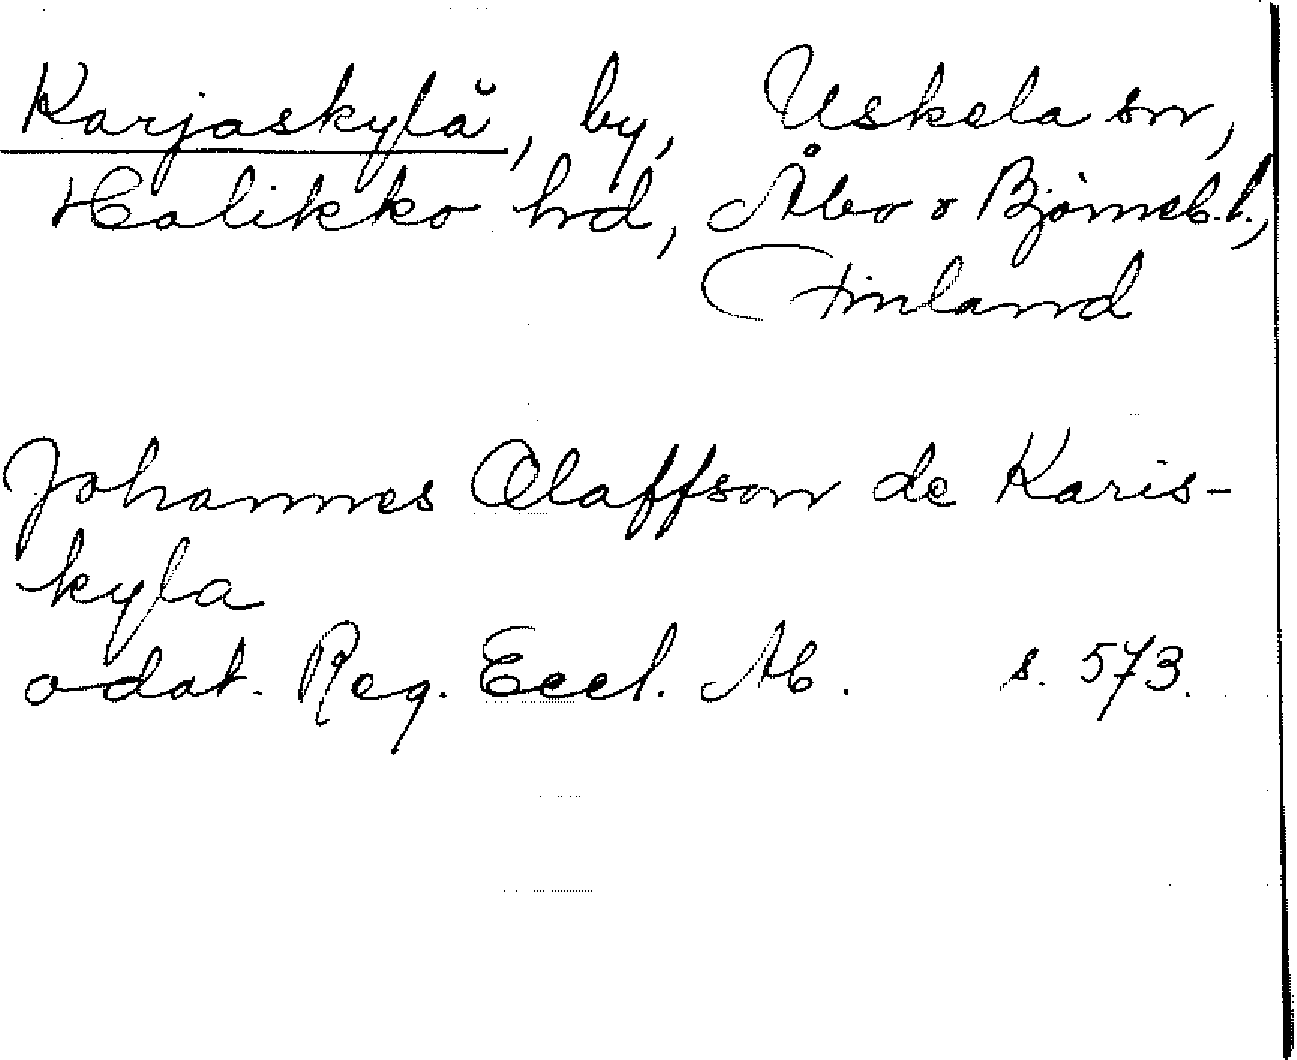 Karjaskylä, by, Uskela sn,
Halikko hd, Åbo o Björneb. l.,
Finland
Johannes Olaffson de Karis-
kyla
odat. Reg. Eccl. Ab. s. 573.